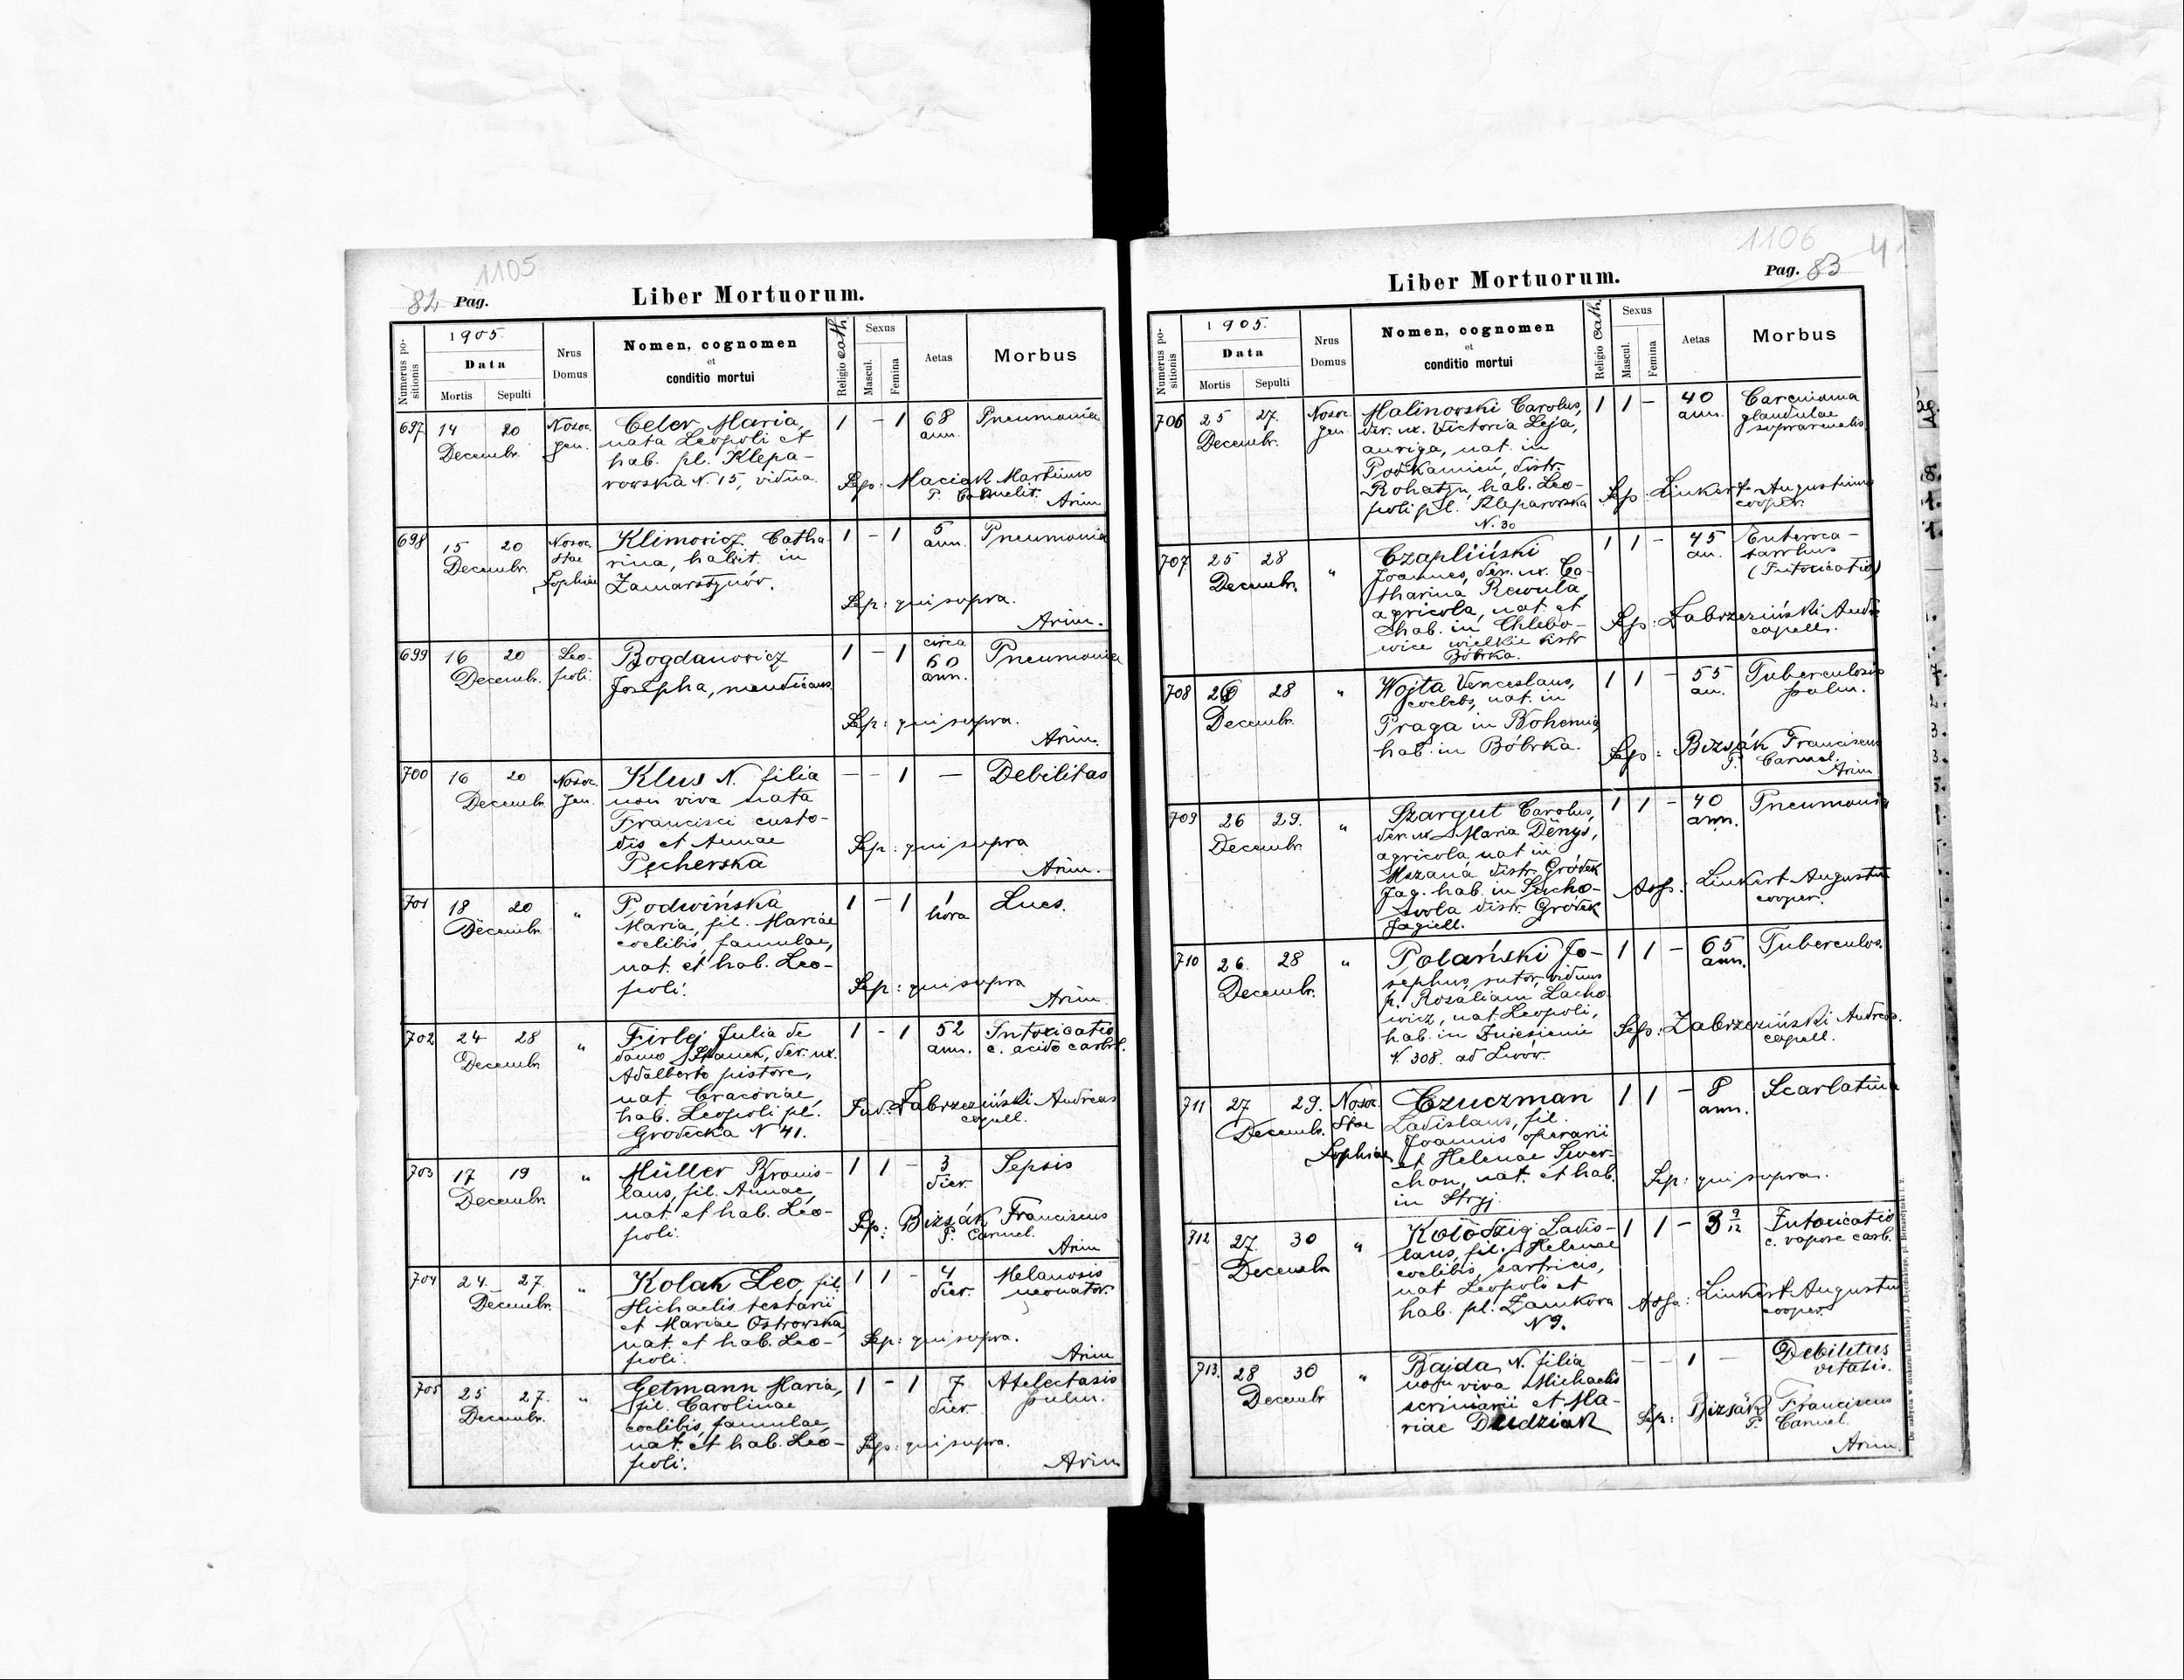 1105
82 Pag.
Liber Mortuorum.
Numerus positionis
1905.
Data
Mortis Sepulti
Nrus Domus
Nomen, cognomen
et
conditio mortui
Religio cath.
Sexus
Mascul. Femina
Aetas
Morbus
697 14 20 Decembr. Nosoc. gen.
Celer Maria,
nata Leopoli et
hab. pl. Klepa-
rowska N. 15, vidua.
1 - 1 68 ann. Pneumonia
Sep: Maciak Martinus
P. Carmelit. Arim.
698 15 20 Decembr. Nosoc. Stae Sophiae
Klimowicz Catha
rina, habit. in
Zamarstynów.
1 - 1 5 ann. Pneumonia
Sep: qui supra.
Arim.
699 16 20 Decembr. Leo-
poli.
Bogdanowicz
Josepha, mendicans.
1 - 1 circa 60 ann. Pneumonia
Sep: qui supra.
Arim.
700 16 20 Decembr. Nosoc. gen.
Klus N. filia
non viva nata
Francisci custo-
dis et Annae
Pęcherska
- - 1 - Debilitas
Sep: qui supra
Arim.
701 18 20 Decembr. "
Podwińska
Maria, fil. Mariae
coelibis, famulae,
nat. et hab. Leo-
poli.
1 - 1 1 hora Lues.
Sep: qui supra
Arim.
702 24 28 Decembr. "
Firlej Julia de
domo Stanek, der. ux.
Adalberto pistore,
nat. Cracoviae,
hab. Leopoli pl.
Grodecka N 41.
1 - 1 52 ann. Intoxicatio
c. acido carbol.
Ind. Zabrzeziński Andreas
capell.
703 17 19 Decembr. "
Müller Bronis-
laus, fil. Annae,
nat. et hab. Leo-
poli.
1 1 - 3 dier. Sepsis
Sep: Bizsák Franciscus
P. Carmel.
Arim
704 24. 27. Decembr. "
Kolak Leo fil.
Michaelis testarii
et Mariae Ostrowska,
nat. et hab. Leo-
poli.
1 1 - 4 dier. Melanosis
neonator.
Sep: qui supra.
Arim
705 25 27. Decembr. "
Getmann Maria,
fil. Carolinae
coelibis, famulae,
nat. et hab. Leo-
poli.
1 - 1 7 dier. Atelectasis
pulm.
Sep: qui supra.
Arim
1106
Pag. 83
Liber Mortuorum.
Numerus positionis
1905.
Data
Mortis Sepulti
Nrus Domus
Nomen, cognomen
et
conditio mortui
Religio cath.
Sexus
Mascul. Femina
Aetas
Morbus
706 25 27. Decembr. Nosoc. gen.
Malinowski Carolus,
der. ux. Victoria Leja,
auriga, nat. in
Podkamień, distr.
Rohatyn, hab. Leo-
poli pl. Kleparowska
N. 30
1 1 - 40 ann. Carcinoma
glandulae
suprarenalis
Sep: Linkert Augustinus
cooper.
707 25 28 Decembr. "
Czapliński
Joannes, der. ux. Ca-
tharina Rewula,
agricola, nat. et
hab. in Chlebo-
wice wielkie distr
Bóbrka.
1 1 - 45 an. Enteroca-
tarrhus
(Intoxicatio)
Sep: Zabrzeziński Andr.
capell.
708 26 28 Decembr. "
Wojta Venceslaus,
coelebs, nat. in
Praga in Bohemia,
hab. in Bóbrka.
1 1 - 55 an. Tuberculosis
pulm.
Sep: Bizsák Franciscus
P. Carmel.
Arim
709 26 29. Decembr. "
Szargut Carolus,
der. ux. Maria Denys,
agricola nat in
Mszana distr. Gródek
Jag. hab. in Sucho-
wola distr. Gródek
Jagiell.
1 1 - 40 ann. Pneumonia
Ass: Linkert Augustin
cooper.
710 26. 28 Decembr. "
Polański Jo-
sephus, sutor, viduus
p. Rozaliam Lacho
wicz, nat. Leopoli,
hab. in Zniesienie
N. 308. ad Lwów.
1 1 - 65 ann. Tuberculos.
Sep: Zabrzeziński Andreas.
capell.
711 27 29. Decembr. Nosoc. Stae Sophiae
Czuczman
Ladislaus, fil.
Joannis operarii
et Helenae Swer-
chon, nat. et hab.
in Stryj.
1 1 - 8 ann. Scarlatina
Sep: qui supra.
712 27. 30 Decembr. "
Kołodzig Ladis-
laus, fil. Helenae
coelibis, sartricis,
nat Leopoli et
hab. pl. Zamkowa
N 9.
1 1 - 3 9/12 Intoxicatio
c. vapore carb.
Ass: Linkert Augustin
cooper.
713. 28 30 Decembr "
Bajda N. filia
non viva Michaelis
scriniarii et Ma-
riae Dudziak
- - 1 - Debilitas
vitalis.
Sep: Bizsák Franciscus
P. Carmel.
Arim.